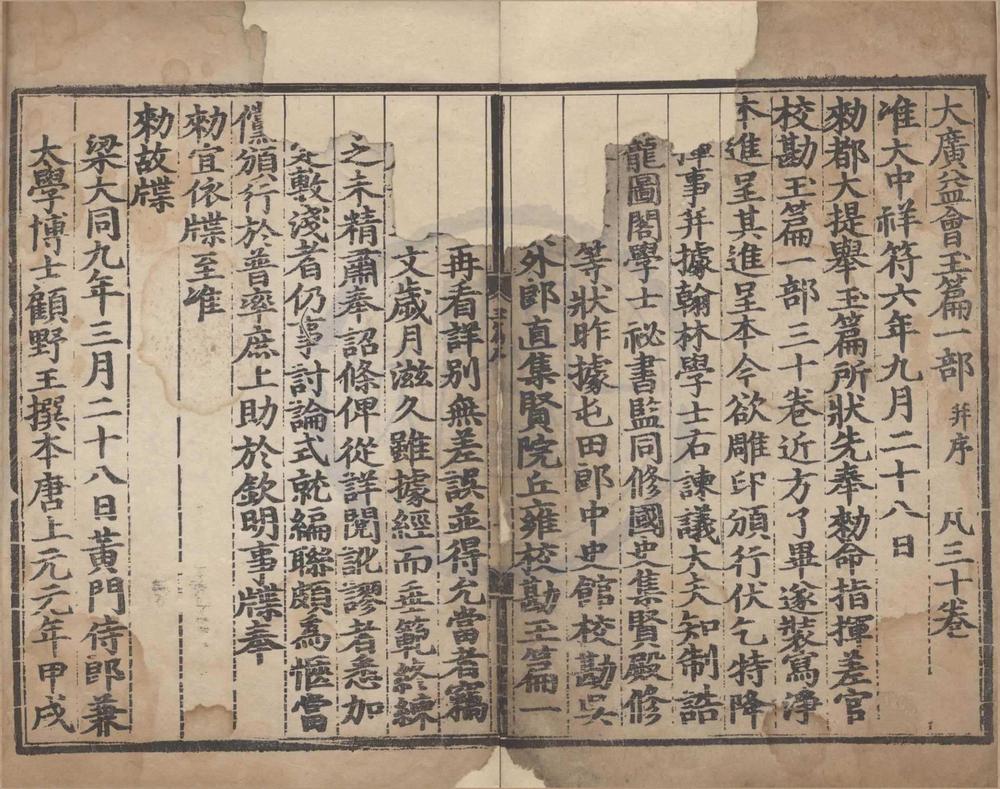 大廣益會玉篇一部 幷序 凡三十卷
准大中祥符六年九月二十八日
勑都大提舉玉篇所狀先奉勑命指揮差官
校勘玉篇一部三十卷近方了畢遂裝寫淨
本進呈其進呈本今欲雕印頒行伏乞特降
事幷據翰林學士右諫議大夫知制誥
龍圖閣學士祕書監同修國史集賢殿修
等狀昨據屯田郎中史館校勘吳
外郎直集賢院丘雍校勘玉篇一
再看詳別無差誤並得允當者竊
文歲月滋久雖據經而垂範終練
之未精肅奉詔條俾從詳閱訛謬者悉加
定敷淺者仍事討論式就編聯頗爲愜當
儻頒行於普率庶上助於欽明事牒奉
勑宜依牒至准
勑故牒
梁大同九年三月二十八日黃門侍郎兼
太學博士顧野王撰本唐上元元年甲戌